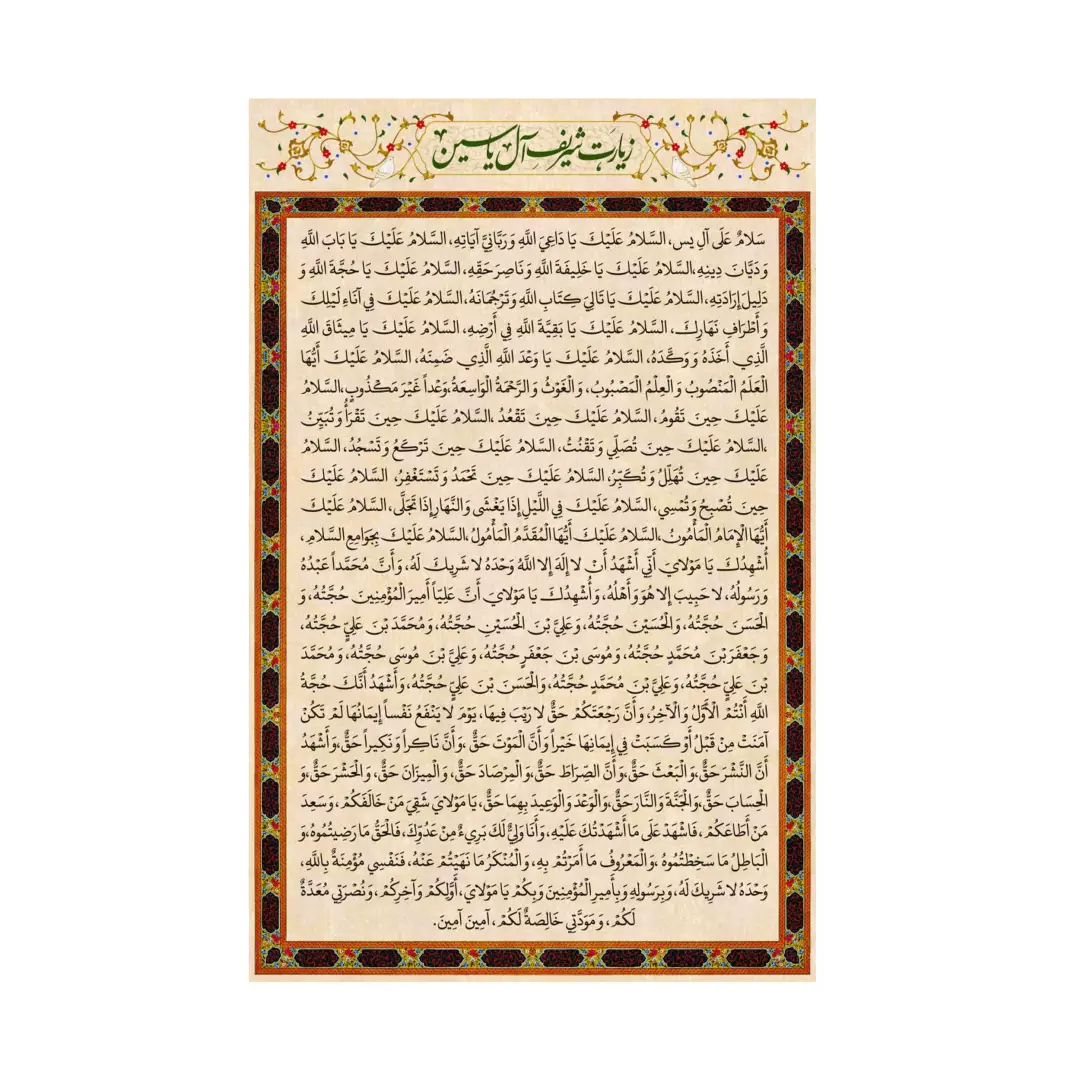 زیارت شریف آل یاسین
سَلامٌ عَلَى آلِ يس، السَّلامُ عَلَيْكَ يَا دَاعِيَ اللَّهِ وَ رَبَّانِيَّ آيَاتِهِ، السَّلامُ عَلَيْكَ يَا بَابَ اللَّهِ
وَ دَيَّانَ دِينِهِ،السَّلامُ عَلَيْكَ يَا خَلِيفَةَ اللَّهِ وَ نَاصِرَ حَقِّهِ، السَّلامُ عَلَيْكَ يَا حُجَّةَ اللَّهِ وَ
دَلِيلَ إِرَادَتِهِ، السَّلامُ عَلَيْكَ يَا تَالِيَ كِتَابِ اللَّهِ وَ تَرْجُمَانَهُ، السَّلامُ عَلَيْكَ فِي آنَاءِ لَيْلِكَ
وَ أَطْرَافِ نَهَارِكَ، السَّلامُ عَلَيْكَ يَا بَقِيَّةَ اللَّهِ فِي أَرْضِهِ، السَّلامُ عَلَيْكَ يَا مِيثَاقَ اللَّهِ
الَّذِي أَخَذَهُ وَ وَكَّدَهُ، السَّلامُ عَلَيْكَ يَا وَعْدَ اللَّهِ الَّذِي ضَمِنَهُ، السَّلامُ عَلَيْكَ أَيُّهَا
الْعَلَمُ الْمَنْصُوبُ وَ الْعِلْمُ الْمَصْبُوبُ، وَ الْغَوْثُ وَ الرَّحْمَةُ الْوَاسِعَةُ،وَعْداً غَيْرَ مَكْذُوبٍ،السَّلامُ
عَلَيْكَ حِينَ تَقُومُ، السَّلامُ عَلَيْكَ حِينَ تَقْعُدُ ،السَّلامُ عَلَيْكَ حِينَ تَقْرَأُ وَ تُبَيِّنُ
،السَّلامُ عَلَيْكَ حِينَ تُصَلِّي وَ تَقْنُتُ، السَّلامُ عَلَيْكَ حِينَ تَرْكَعُ وَ تَسْجُدُ، السَّلامُ
عَلَيْكَ حِينَ تُهَلِّلُ وَ تُكَبِّرُ، السَّلامُ عَلَيْكَ حِينَ تَحْمَدُ وَ تَسْتَغْفِرُ، السَّلامُ عَلَيْكَ
حِينَ تُصْبِحُ وَ تُمْسِي، السَّلامُ عَلَيْكَ فِي اللَّيْلِ إِذَا يَغْشَى وَ النَّهَارِ إِذَا تَجَلَّى، السَّلامُ عَلَيْكَ
أَيُّهَا الْإِمَامُ الْمَأْمُونُ ،السَّلامُ عَلَيْكَ أَيُّهَا الْمُقَدَّمُ الْمَأْمُولُ،السَّلامُ عَلَيْكَ بِجَوَامِعِ السَّلامِ ،
أُشْهِدُكَ يَا مَوْلايَ أَنِّي أَشْهَدُ أَنْ لا إِلَهَ إِلا اللَّهُ وَحْدَهُ لا شَرِيكَ لَهُ، وَ أَنَّ مُحَمَّداً عَبْدُهُ
وَ رَسُولُهُ، لا حَبِيبَ إِلا هُوَ وَ أَهْلُهُ، وَ أُشْهِدُكَ يَا مَوْلايَ أَنَّ عَلِيّاً أَمِيرَ الْمُؤْمِنِينَ حُجَّتُهُ، وَ
الْحَسَنَ حُجَّتُهُ، وَ الْحُسَيْنَ حُجَّتُهُ، وَ عَلِيَّ بْنَ الْحُسَيْنِ حُجَّتُهُ، وَ مُحَمَّدَ بْنَ عَلِيٍّ حُجَّتُهُ،
وَ جَعْفَرَ بْنَ مُحَمَّدٍ حُجَّتُهُ، وَ مُوسَى بْنَ جَعْفَرٍ حُجَّتُهُ، وَ عَلِيَّ بْنَ مُوسَى حُجَّتُهُ، وَ مُحَمَّدَ
بْنَ عَلِيٍّ حُجَّتُهُ، وَ عَلِيَّ بْنَ مُحَمَّدٍ حُجَّتُهُ، وَ الْحَسَنَ بْنَ عَلِيٍّ حُجَّتُهُ، وَ أَشْهَدُ أَنَّكَ حُجَّةُ
اللَّهِ أَنْتُمْ الْأَوَّلُ وَ الْآخِرُ، وَ أَنَّ رَجْعَتَكُمْ حَقٌّ لا رَيْبَ فِيهَا، يَوْمَ لا يَنْفَعُ نَفْساً إِيمَانُهَا لَمْ تَكُنْ
آمَنَتْ مِنْ قَبْلُ أَوْ كَسَبَتْ فِي إِيمَانِهَا خَيْراً وَ أَنَّ الْمَوْتَ حَقٌّ ،وَ أَنَّ نَاكِراً وَ نَكِيراً حَقٌّ،وَ أَشْهَدُ
أَنَّ النَّشْرَ حَقٌّ،وَ الْبَعْثَ حَقٌّ،وَ أَنَّ الصِّرَاطَ حَقٌّ،وَ الْمِرْصَادَ حَقٌّ، وَ الْمِيزَانَ حَقٌّ، وَ الْحَشْرَ حَقٌّ،وَ
الْحِسَابَ حَقٌّ،وَ الْجَنَّةَ وَ النَّارَ حَقٌّ،وَ الْوَعْدَ وَ الْوَعِيدَ بِهِمَا حَقٌّ، يَا مَوْلايَ شَقِيَ مَنْ خَالَفَكُمْ، وَ سَعِدَ
مَنْ أَطَاعَكُمْ، فَاشْهَدْ عَلَى مَا أَشْهَدْتُكَ عَلَيْهِ، وَ أَنَا وَلِيٌّ لَكَ بَرِيءٌ مِنْ عَدُوِّكَ، فَالْحَقُّ مَا رَضِيتُمُوهُ، وَ
الْبَاطِلُ مَا سَخِطْتُمُوهُ ،وَ الْمَعْرُوفُ مَا أَمَرْتُمْ بِهِ، وَ الْمُنْكَرُ مَا نَهَيْتُمْ عَنْهُ، فَنَفْسِي مُؤْمِنَةٌ بِاللَّهِ،
وَحْدَهُ لا شَرِيكَ لَهُ، وَ بِرَسُولِهِ وَ بِأَمِيرِ الْمُؤْمِنِينَ وَ بِكُمْ يَا مَوْلايَ، أَوَّلِكُمْ وَ آخِرِكُمْ، وَ نُصْرَتِي مُعَدَّةٌ
لَكُمْ، وَ مَوَدَّتِي خَالِصَةٌ لَكُمْ، آمِينَ آمِينَ.